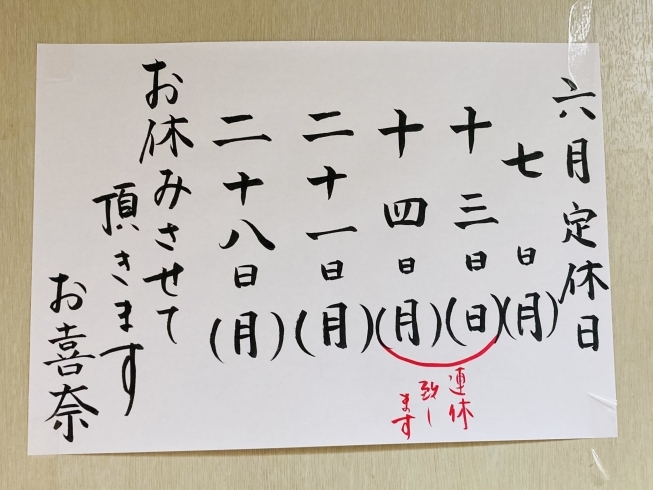 六月定休日
七日(月)
十三日(日)
十四日(月)
連休
致し
ます
二十一日(月)
二十八日(月)
お休みさせて
頂きます
お喜奈